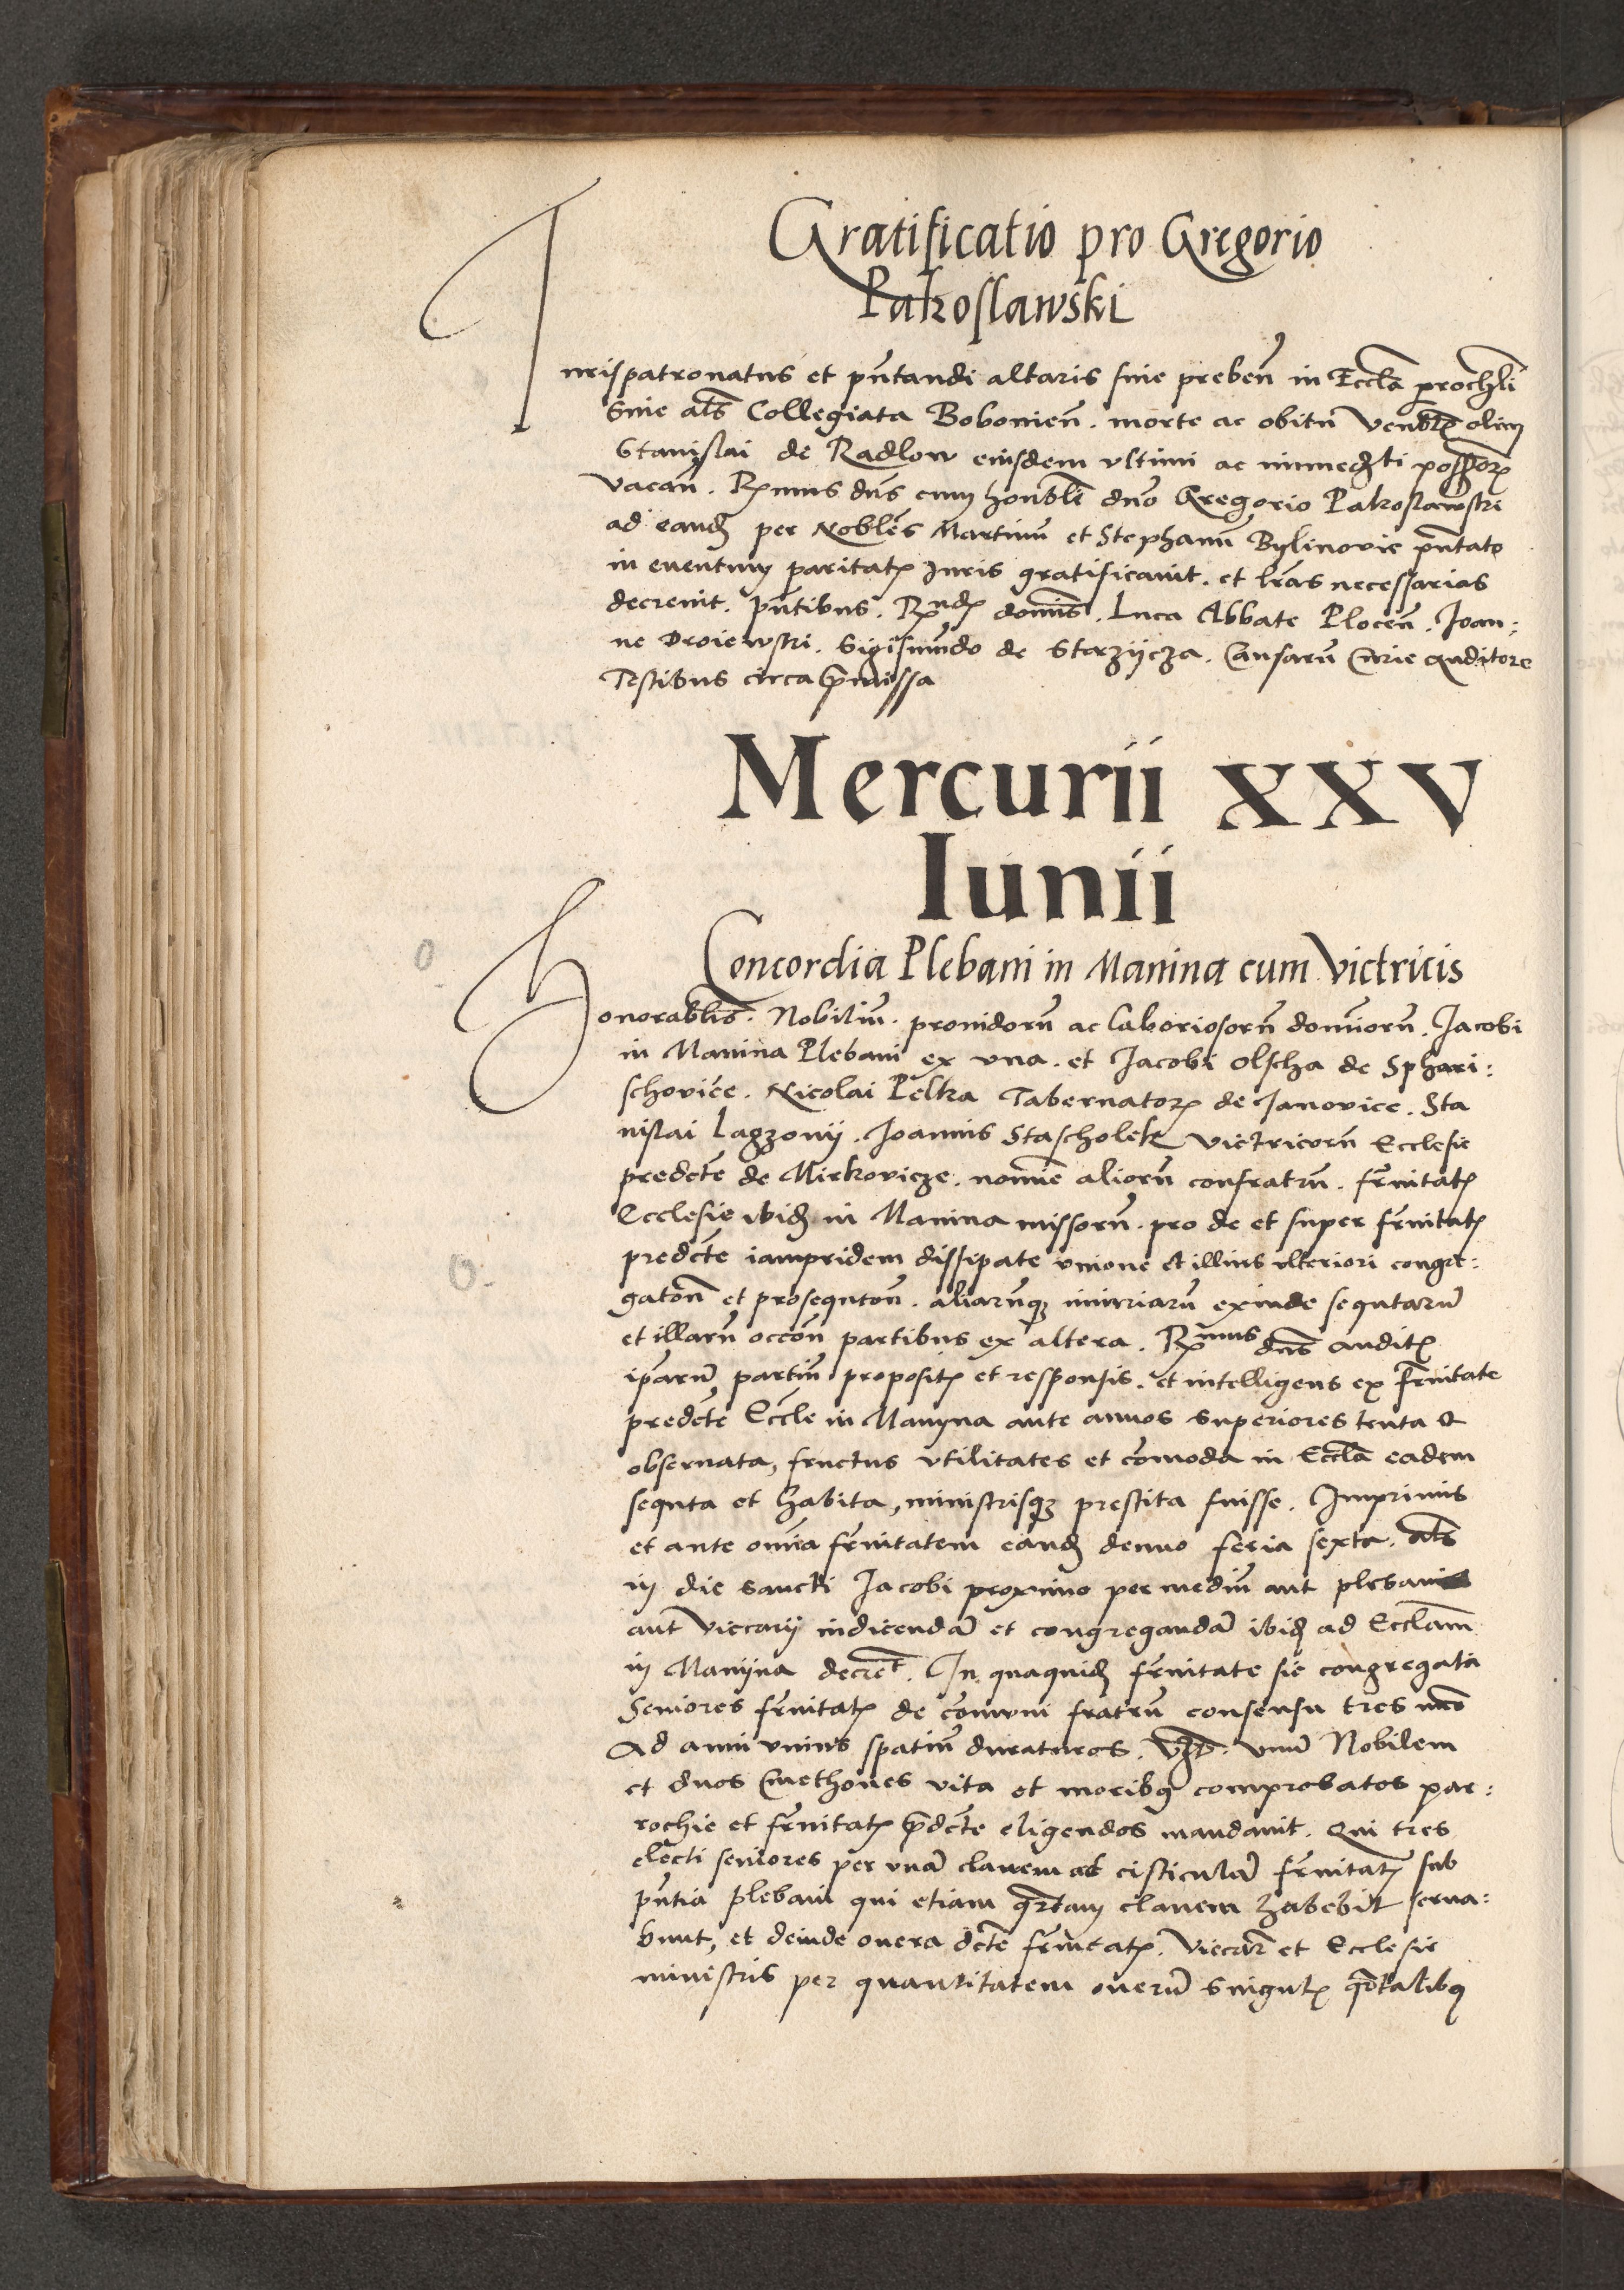 Gratificatio pro Gregorio
Pakoslawski
Iurispatronatus et pn̄tandi altaris siue prebeñ in Eccl̄a parochl̄i
Siue al̄s Collegiata Bobouieñ. morte ac obitu Venbl̄is olim
Stanislai de Radlow eiusdem vltimi ac immedti possessoris
Vacañ. Rmus dn̄s cum honbl̄i dn̄o Gregorio Pakoslawski
ad eand per Nobl̄es Martinū et Stephanū Bylinovie pn̄tato
in euentum paritatis Iuris gratificauit. et lr̄as necessarias
decreuit. pn̄tibus. Rndis domīs. Luca Abbate Ploceñ. Ioan:
ne Droiewski. Sigismūdo de Starzijcza. Causarū Curie auditore
Testibus circa p̄missa
Mercurii XXV
Iunii
Concordia Plebani in Manina cum Victricis
Honorabl̄is. Nobiliū. prouidorū ac laboriosorū domīorū. Iacobi
in Manina Plebani ex vna. et Jacobi Olscha de Sphari:
schoviēe. Nicolai Pelka Tabernatoris de Janovice. Sta
nislai Lagzonij. Joannis Stascholek Victricorū Ecclesie
predcte de Mirkovicze. nomīe aliorū confratrū. fr̄nitatis
Ecclesie ibid in Manina missorū. pro de et super fr̄nitatis
predcte iampridem dissipate vnione et illius vlteriori congre:
gatoñ et prosequtoñ. aliarūq iniuriarū exinde sequtarū
et illarū occoñ partibus ex altera. Rmus dn̄s auditis
ip̄arū partiū propositis et responsis. et intelligens ex fr̄nitate
predcte Eccl̄e in Manyna ante annos superiores tenta et
obseruata, fructus vtilitates et cōmoda in Eccl̄a eadem
sequta et habita, ministrisq prestita fuisse. Imprimis
et ante omīa fr̄nitatem eand denuo feria sexta. al̄s
in die sancti Jacobi proximo per mediū aut plebani
aut Viccarij indicendā et congregandā ibid ad Eccl̄am
in Manijna decret. In quaquid fr̄nitate sic congregata
Seniores fr̄nitatis de cōmuni fratrū consensu tres
Ad anni vnius spatiū duraturos. vz. vnū Nobilem
et duos Cmethones vita et moribq comprobatos par:
rochie et fr̄nitatis p̄dcte eligendos mandauit. Qui tres
electi seniores per vnā clauem ad cisticulā fr̄nitatis sub
pn̄tia plebani qui etiam qrtam clauem habebit serua:
bunt, et deinde onera dcte fr̄nitatis. Viccar et Ecclesie
ministris per quantitatem onerū singulis qrtalibq